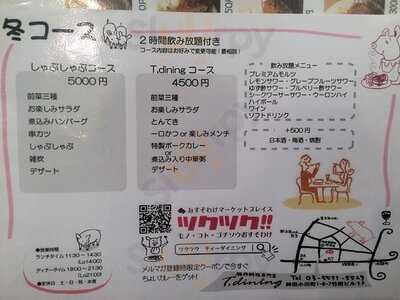 冬コース
2時間飲み放題付き
コース内容はお好みで変更可能!(要相談)
しゃぶしゃぶコース
5000円
前菜三種
お楽しみサラダ
煮込みハンバーグ
串カツ
しゃぶしゃぶ
雑炊
デザート
T.dining コース
4500円
前菜三種
お楽しみサラダ
とんてき
一口かつ or 楽しみメンチ
特製ポークカレー
or
煮込み入り中華粥
デザート
飲み放題メニュー
プレミアムモルツ
レモンサワー・グレープフルーツサワー
ゆず酢サワー・ブルベリー酢サワー
シークワーサーサワー・ウーロンハイ
ハイボール
ワイン
ソフトドリンク
+500円
日本酒・梅酒・焼酎
おすそわけマーケットプレイス
ツクツク!!
モノ・コト・ゴチソウおすそわけ
ツクツク ティーダイニング
メルマガ登録時限定クーポンで今すぐ
ちょいカレーをゲット!
T.dining
営業時間
ランチタイム 11:30~14:30
(Lo1400)
ディナータイム 18:00~21:30
(Lo2100)
定休日